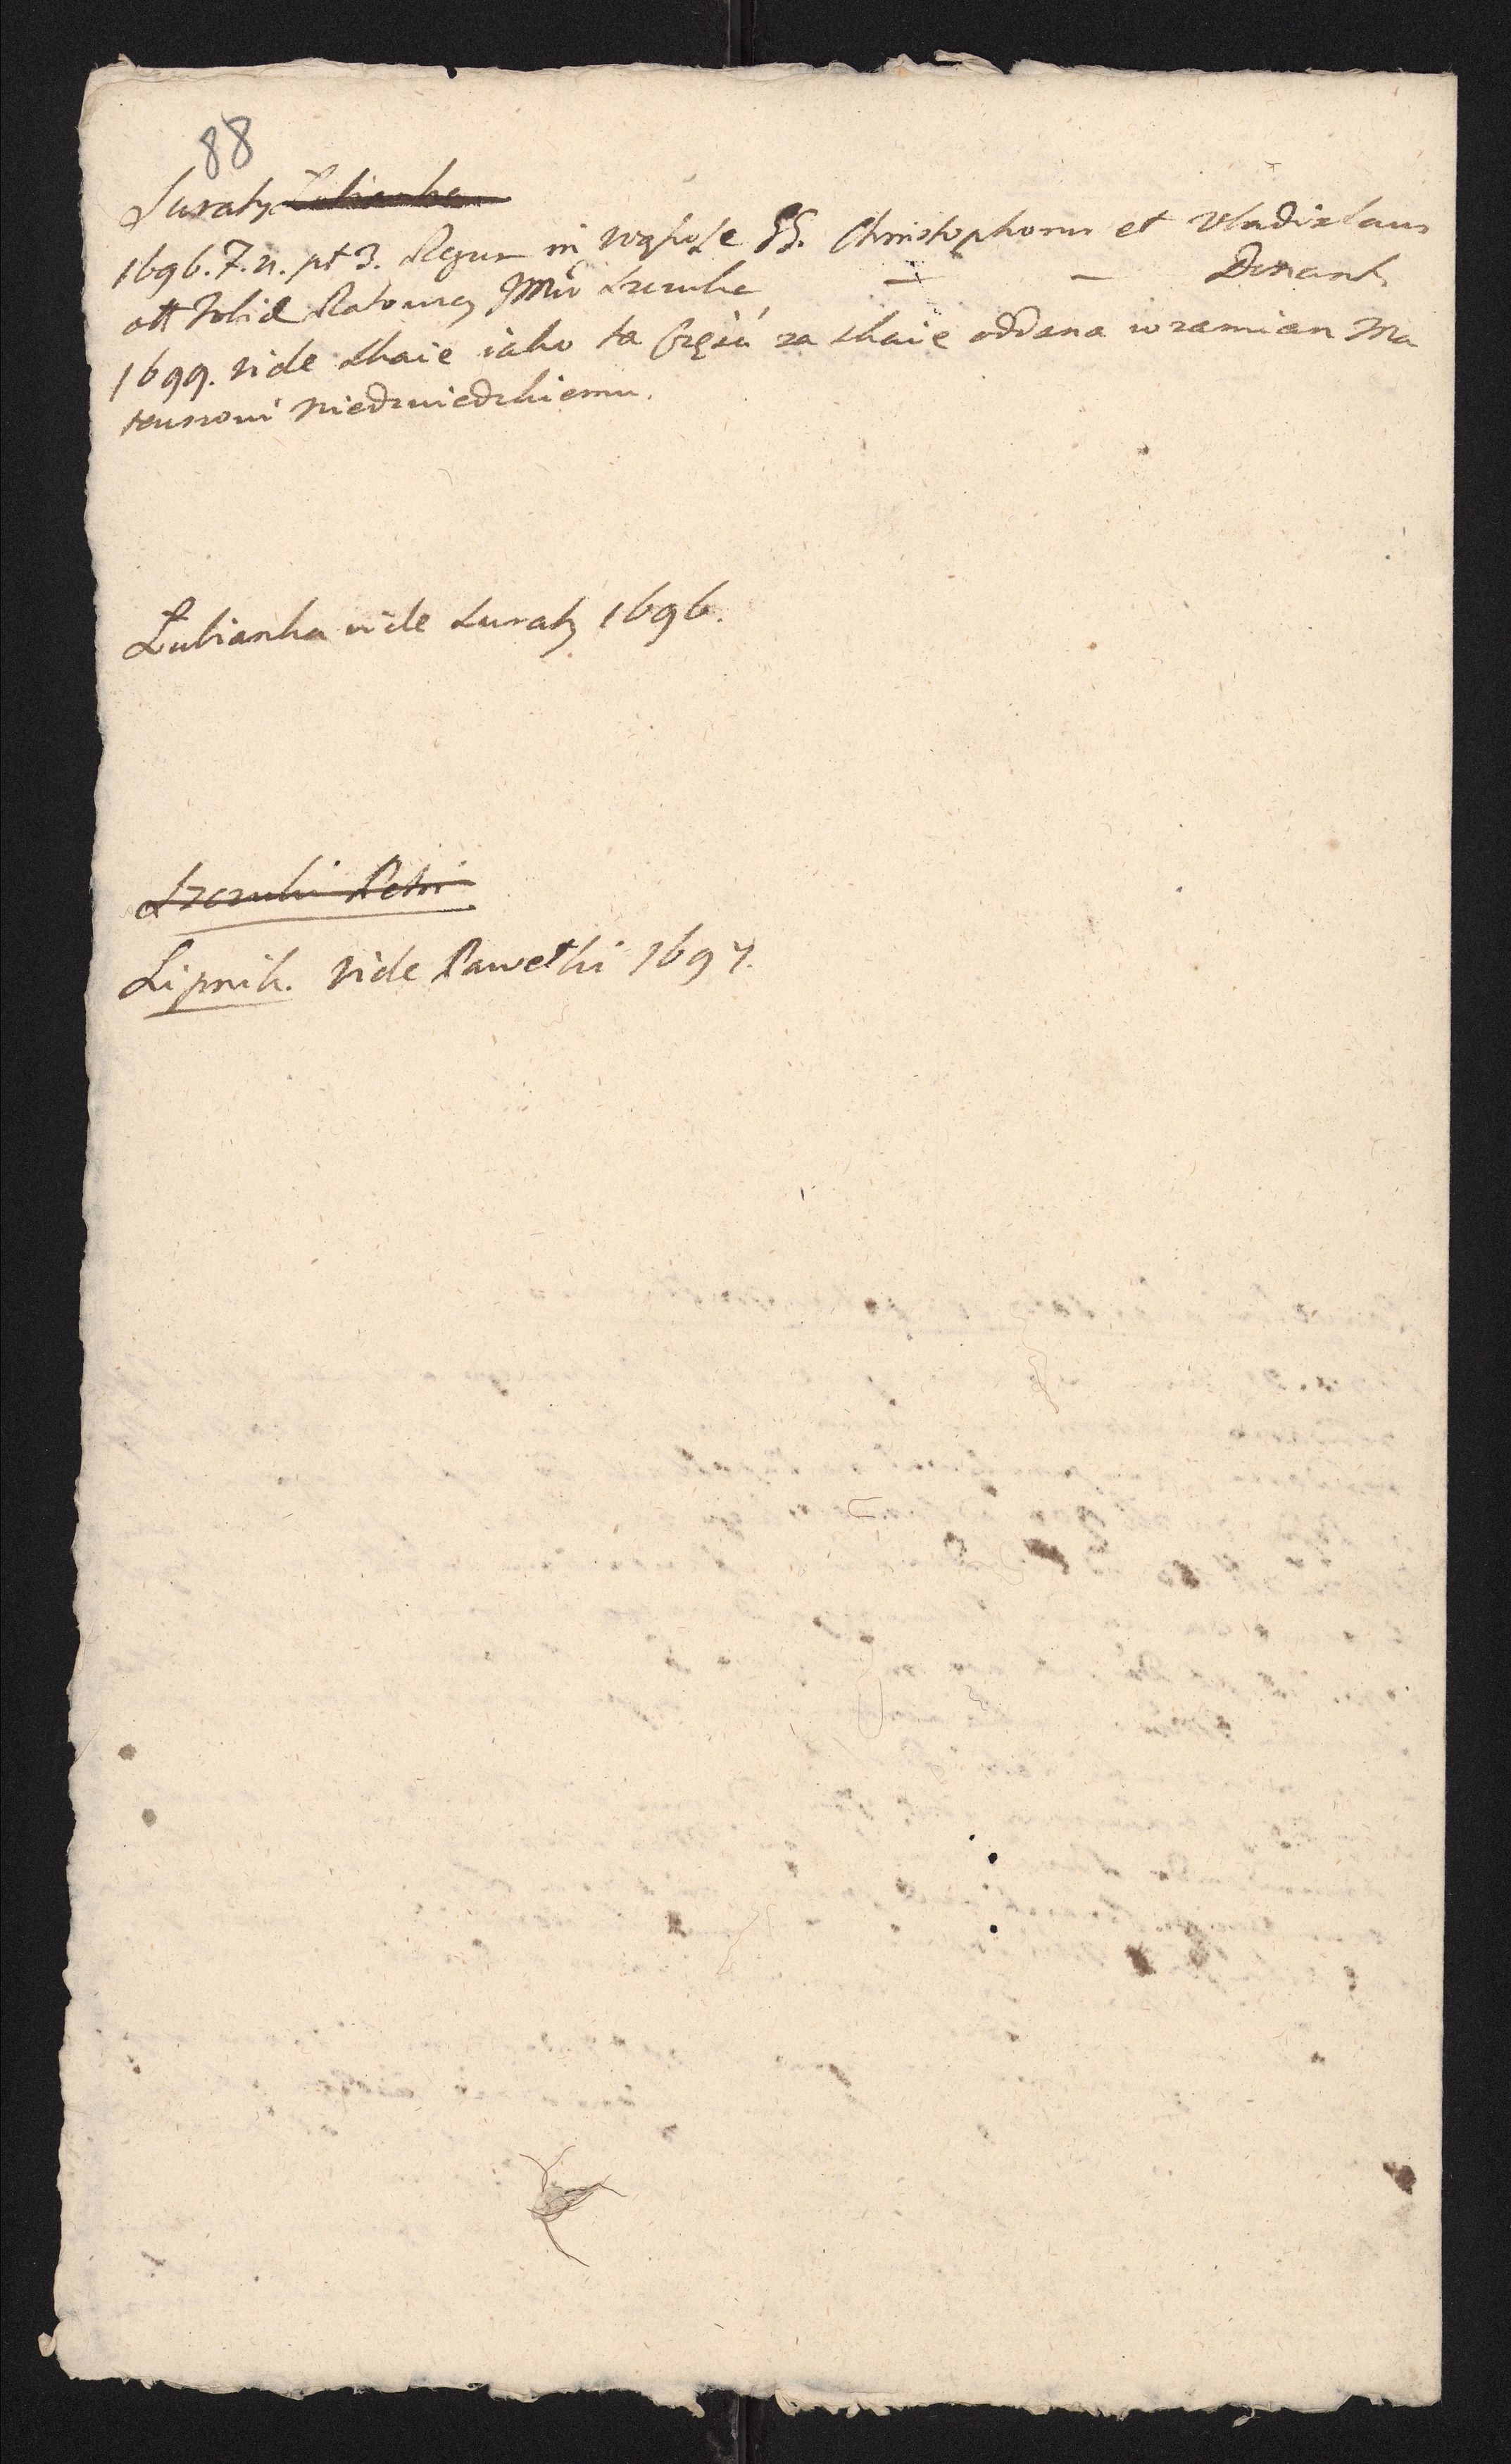 88
Suraty Lubianka
1696. 7. n. pt 3. Regur in wąsosze SS. Christophorus et Vladislaus
att Nobil Ratowscy Jmci Szczuke — — Donant
1699. vide Skaie iako ta część za skaie oddana w zamian Ma
teuszowi Niedzwiedzkiemu.
Łubianka vide Suraty 1696.
Szczuki Petri
Lipnik. vide Pawełki 1697.